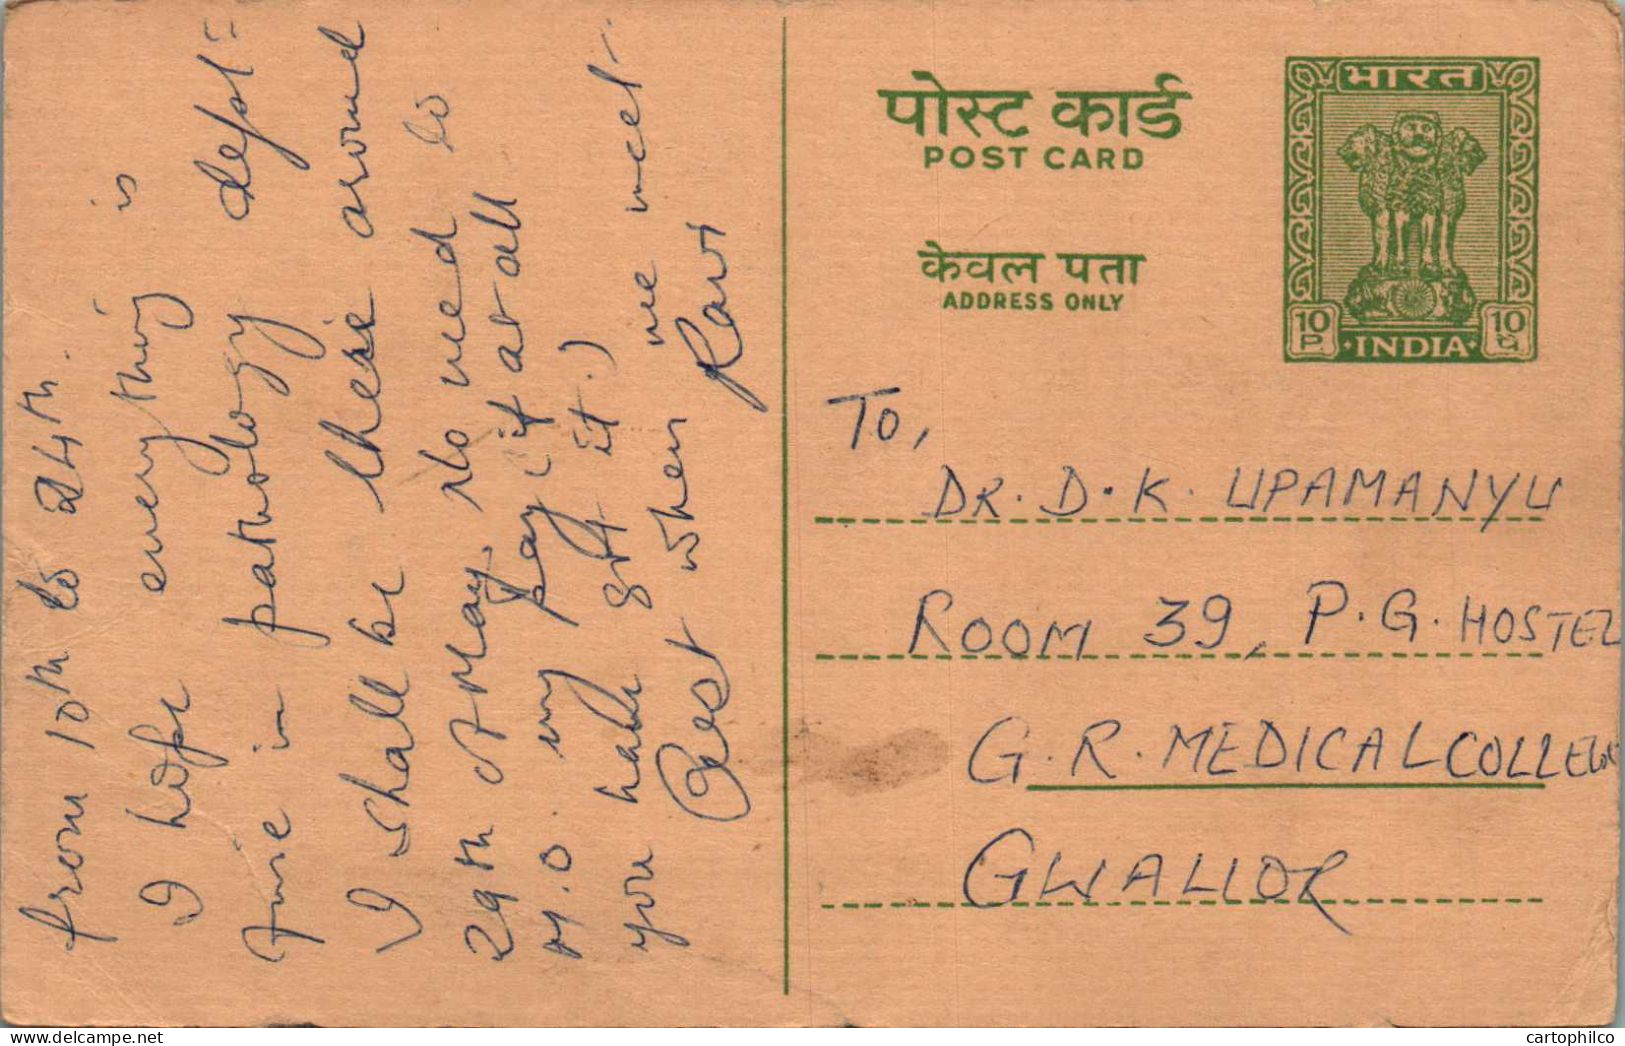 from 10th to 24th.
I hope everything is
fine in pathology deptt=
I shall be there around
29th of May. No need to
M.O my pay (if at all
you have got it.)
Best when we meet-
Ravi
पोस्ट कार्ड
POST CARD
केवल पता
ADDRESS ONLY
भारत
10 P
10 प
·INDIA·
To,
DR. D. K. UPAMANYU
ROOM 39, P. G. HOSTEL
G. R. MEDICAL COLLEGE
GWALIOR
cartophilco